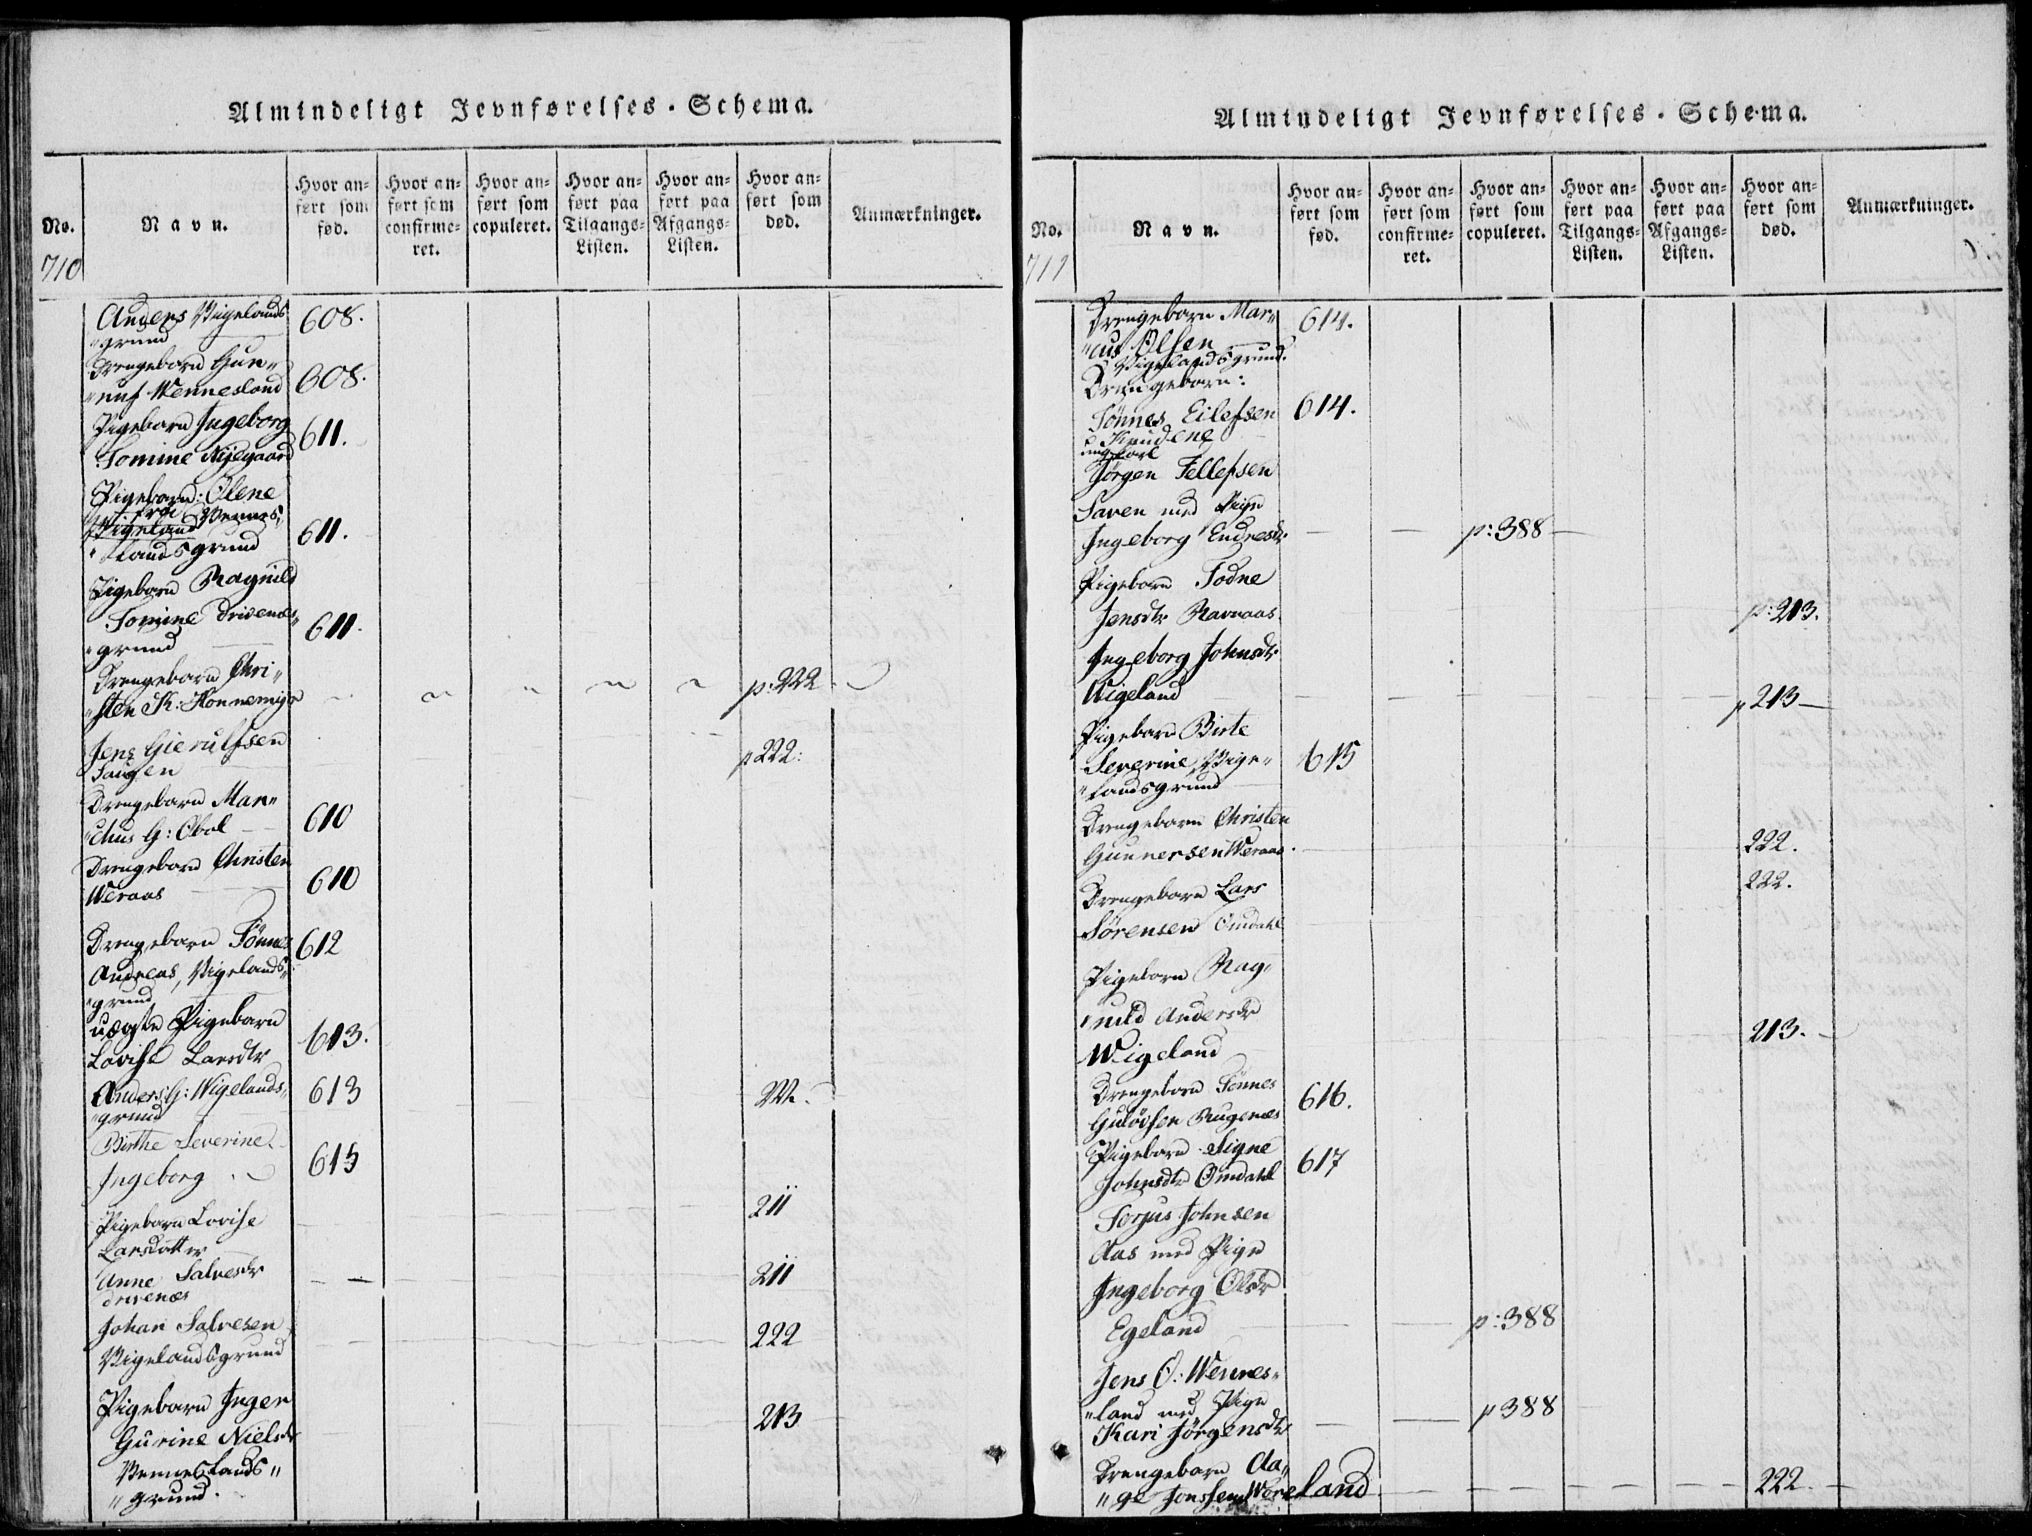 Almindeligt Jevnførelses-Schema.
No.
Navn.
Hvor anført som fød.
Hvor anført som confirmeret.
Hvor anført som copuleret.
Hvor anført paa Tilgangs-Listen.
Hvor anført paa Afgangs-Listen.
Hvor anført som død.
Anmærkninger.
710
Anders Vigelands
"grund 608.
Drengebarn Gun"
"nuf Wennesland 608.
Pigebarn Ingeborg
Tomine Nijegaard 611.
Pigebarn: Olene
fra
Vigeland Vennes"
"landsgrund 611.
Pigebarn Ragnild
Tomine Drivenæs"
"grund 611.
Drengebarn Chri"
"sten K: Honnemyr p:222
Jens Gierulfsen
p 222:
Drengebarn Mar"
"chus G: Obal 610
Drengebarn Christen
Weraas 610
Drengebarn Tönnes 612
Andreas, Vigelands"
"grund
uægte Pigebarn
Lovise Larsdtr 613.
Anders G: Wigelands"
"grund 613 222.
Birthe Severine
Ingeborg 615
Pigebarn Lovise 211
Larsdatter
Anne Salvesdtr
drivenæs 211
Johan Salvesen
Vigelandsgrund 222
Pigebarn Inger
Gurine Nielsdr 213
Venneslands"
"grund.
Almindeligt Jevnførelses-Schema.
No.
Navn.
Hvor anført som fød.
Hvor anført som confirmeret.
Hvor anført som copuleret.
Hvor anført paa Tilgangs-Listen.
Hvor anført paa Afgangs-Listen.
Hvor anført som død.
Anmærkninger.
711
Drengebarn Mar" 614.
"cus Olsen
Vigelandsgrund.
Drengebarn:
Tönnes Eilefsen 614.
ungkarl
Jörgen Tellefsen
Saven med Pige
Ingeborg Endresdr p:388
Pigebarn Todne
Jensdtr Ravnaas p:213.
Ingeborg Johnsdr
Wigeland p 213
Pigebarn Birte
Severine, Vige" 615
"landsgrund
Drengebarn Christen
Gunnersen Weraas. 222.
Drengebarn Lars 222.
Sörensen Omdahl
Pigebarn Rag"
"nild Andersdr
Wigeland 213.
Drengebarn Tönnes
616.
Pigebarn Signe
Johnsdtr Omdahl 617
Terjus Johnsen
Aas med Pige
Ingeborg Olsdr
Egeland p:388
Jens O: Wennes"
"land med Pige p 388
Kari Jörgensdtr
Drengebarn Aa"
"ge Jonssen Woreland 222.